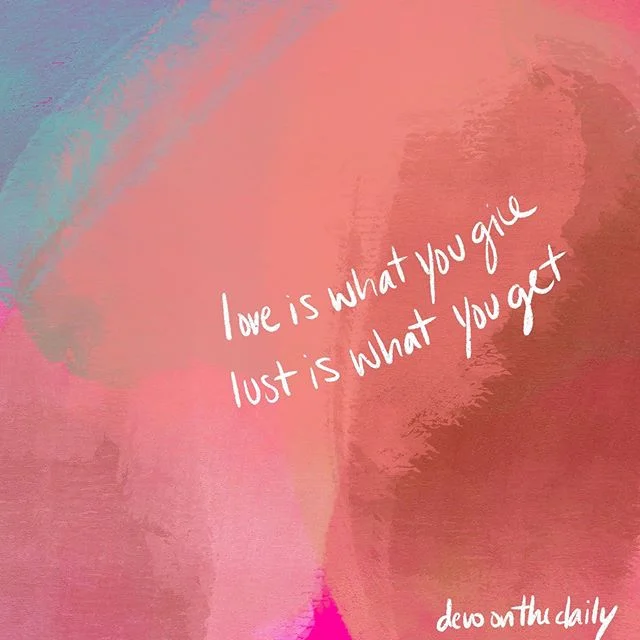 love is what you give
lust is what you get
devo on the daily